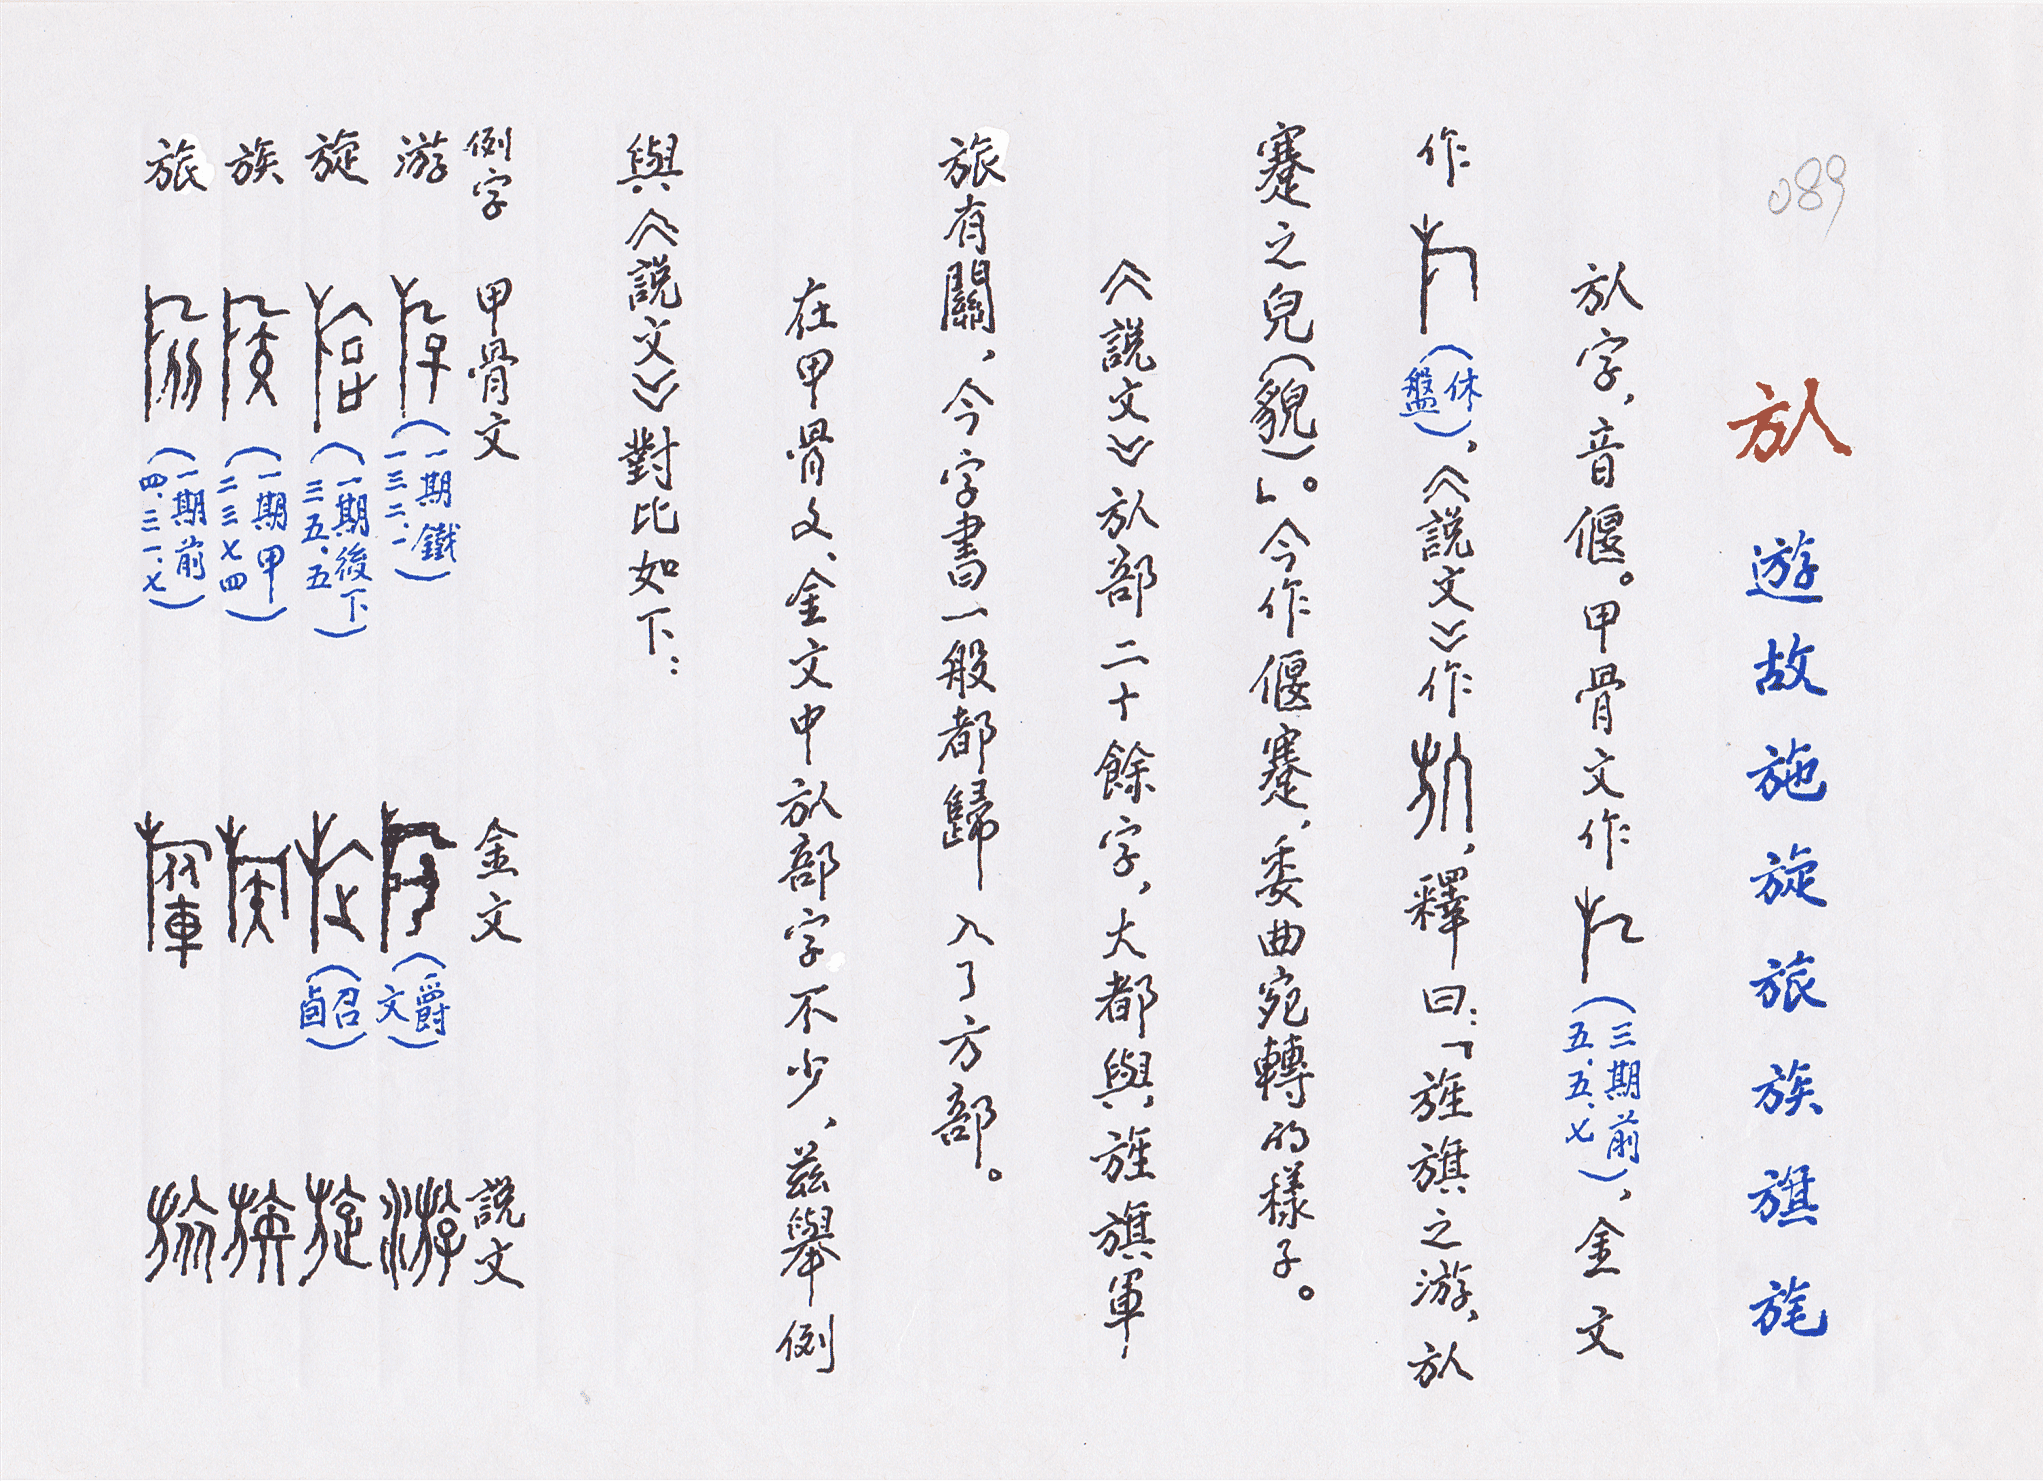 089
㫃 遊 故 施 旋 旅 族 旗 旄
㫃字，音偃。甲骨文作（三期前五．五．七），金文
作（休盤），《説文》作，釋曰：「旌旗之游，㫃
蹇之皃（貌）」。今作偃蹇，委曲宛轉的樣子。
《説文》㫃部二十餘字，大都與旌旗軍
旅有關，今字書一般都歸入了方部。
在甲骨文、金文中㫃部字不少，茲舉例
與《説文》對比如下：
例字 甲骨文 金文 説文
游（一期鐵一三二．一）（爵文）
旋（一期後下三五．五）（召卣）
族（一期甲二三七四）
旅（一期前四．三一．七）